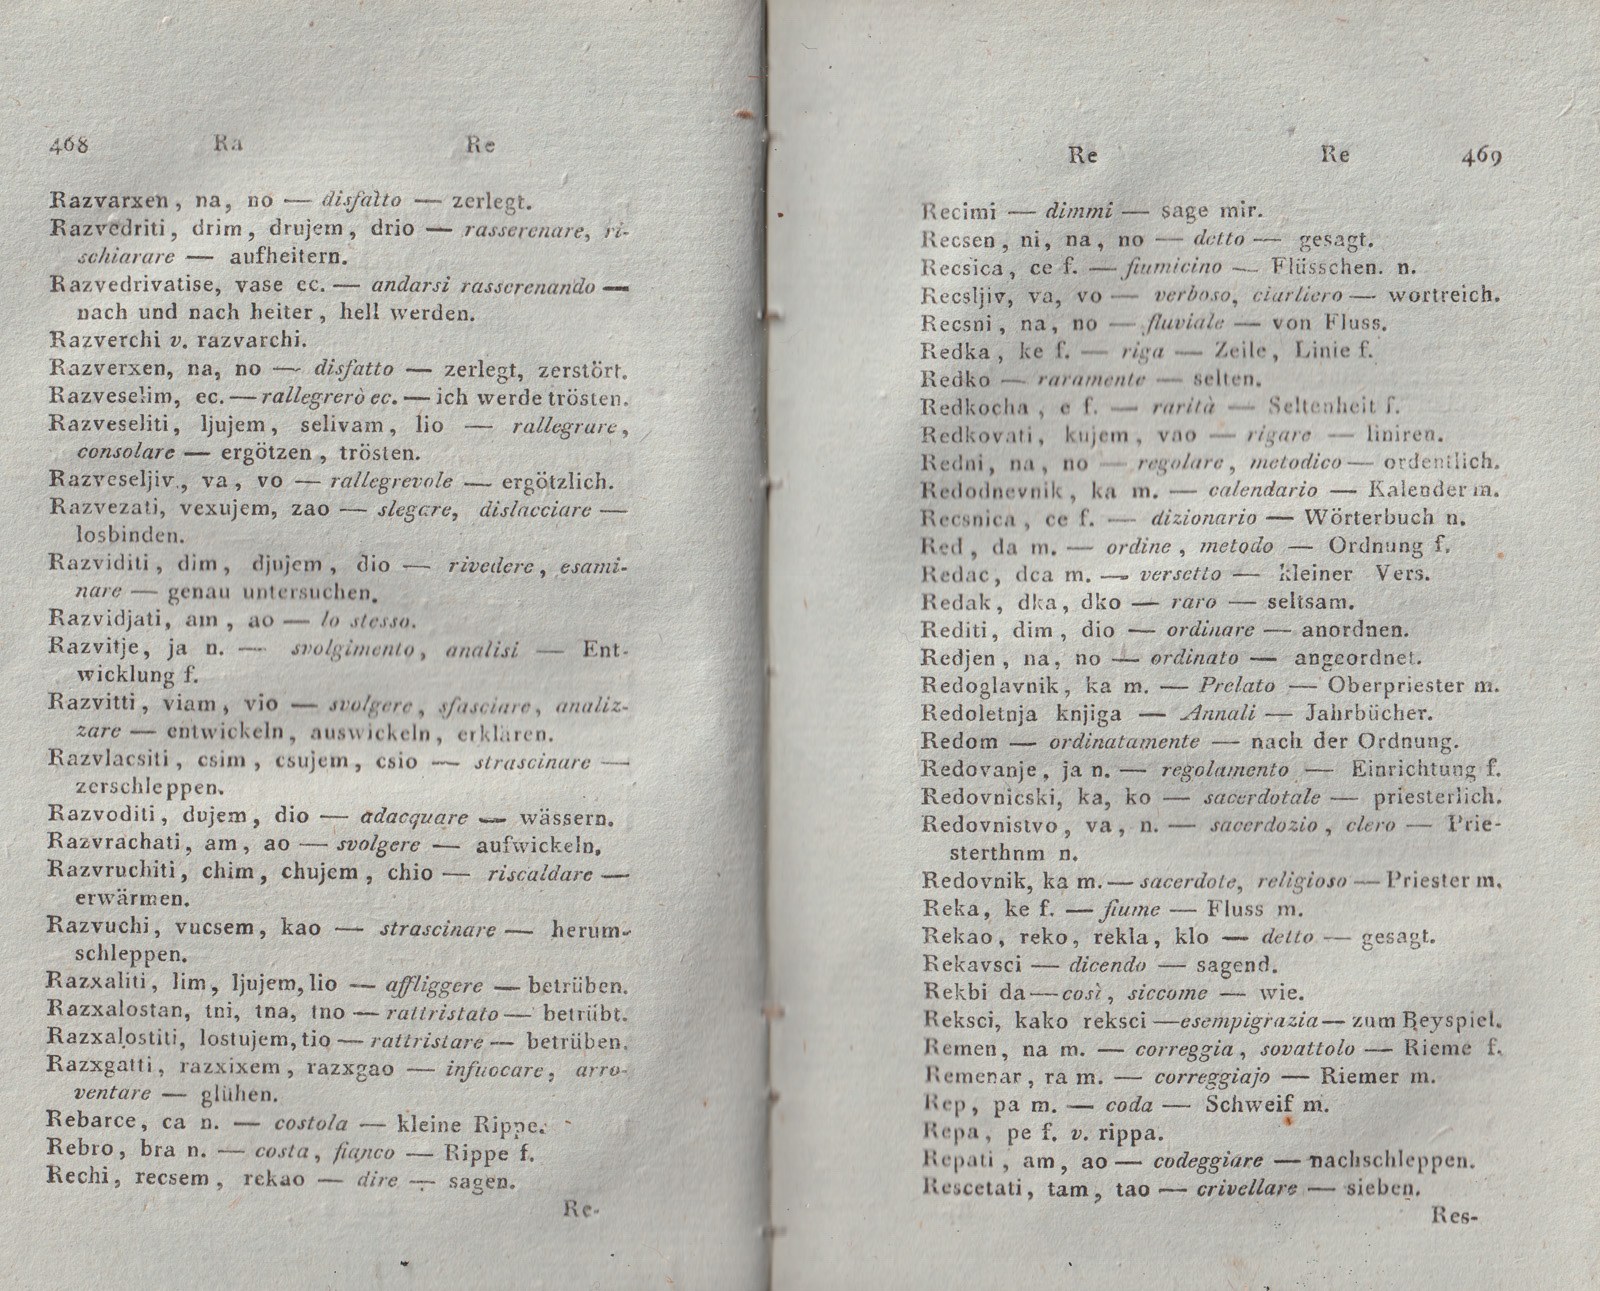 468 Ra Re
Razvarxen, na, no — disfatto — zerlegt.
Razvedriti, drim, drujem, drio — rasserenare, ri-
schiarare — aufheitern.
Razvedrivatise, vase ec. — andarsi rasserenando —
nach und nach heiter, hell werden.
Razverchi v. razvarchi.
Razverxen, na, no — disfatto — zerlegt, zerstört.
Razveselim, ec. — rallegrerò ec. — ich werde trösten.
Razveseliti, ljujem, selivam, lio — rallegrare,
consolare — ergötzen, trösten.
Razveseljiv, va, vo — rallegrevole — ergötzlich.
Razvezati, vexujem, zao — slegare, dislacciare —
losbinden.
Razviditi, dim, djujem, dio — rivedere, esami-
nare — genau untersuchen.
Razvidjati, am, ao — lo stesso.
Razvitje, ja n. — svolgimento, analisi — Ent-
wicklung f.
Razvitti, viam, vio — svolgere, sfasciare, analiz-
zare — entwickeln, auswickeln, erklären.
Razvlacsiti, csim, csujem, csio — strascinare —
zerschleppen.
Razvoditi, dujem, dio — adacquare — wässern.
Razvrachati, am, ao — svolgere — aufwickeln.
Razvruchiti, chim, chujem, chio — riscaldare —
erwärmen.
Razvuchi, vucsem, kao — strascinare — herum-
schleppen.
Razxaliti, lim, ljujem, lio — affliggere — betrüben.
Razxalostan, tni, tna, tno — rattristato — betrübt.
Razxalostiti, lostujem, tio — rattristare — betrüben.
Razxgatti, razxixem, razxgao — infuocare, arro-
ventare — glühen.
Rebarce, ca n. — costola — kleine Rippe.
Rebro, bra n. — costa, fianco — Rippe f.
Rechi, recsem, rekao — dire — sagen.
Re-
Re Re 469
Recimi — dimmi — sage mir.
Recsen, ni, na, no — detto — gesagt.
Recsica, ce f. — fiumicino — Flüsschen. n.
Recsljiv, va, vo — verboso, ciarliero — wortreich.
Recsni, na, no — fluviale — von Fluss.
Redka, ke f. — riga — Zeile, Linie f.
Redko — raramente — selten.
Redkocha, e f. — rarità — Seltenheit f.
Redkovati, kujem, vao — rigare — liniren.
Redni, na, no — regolare, metodico — ordentlich.
Redodnevnik, ka m. — calendario — Kalender m.
Recsnica, ce f. — dizionario — Wörterbuch n.
Red, da m. — ordine, metodo — Ordnung f.
Redac, dca m. — versetto — kleiner Vers.
Redak, dka, dko — raro — seltsam.
Rediti, dim, dio — ordinare — anordnen.
Redjen, na, no — ordinato — angeordnet.
Redoglavnik, ka m. — Prelato — Oberpriester m.
Redoletnja knjiga — Annali — Jahrbücher.
Redom — ordinatamente — nach der Ordnung.
Redovanje, ja n. — regolamento — Einrichtung f.
Redovnicski, ka, ko — sacerdotale — priesterlich.
Redovnistvo, va, n. — sacerdozio, clero — Prie-
sterthnm n.
Redovnik, ka m. — sacerdote, religioso — Priester m.
Reka, ke f. — fiume — Fluss m.
Rekao, reko, rekla, klo — detto — gesagt.
Rekavsci — dicendo — sagend.
Rekbi da — così, siccome — wie.
Reksci, kako reksci — esempigrazia — zum Beyspiel.
Remen, na m. — correggia, sovattolo — Rieme f.
Remenar, ra m. — correggiajo — Riemer m.
Rep, pa m. — coda — Schweif m.
Repa, pe f. v. rippa.
Repati, am, ao — codeggiare — nachschleppen.
Rescetati, tam, tao — crivellare — sieben.
Res-